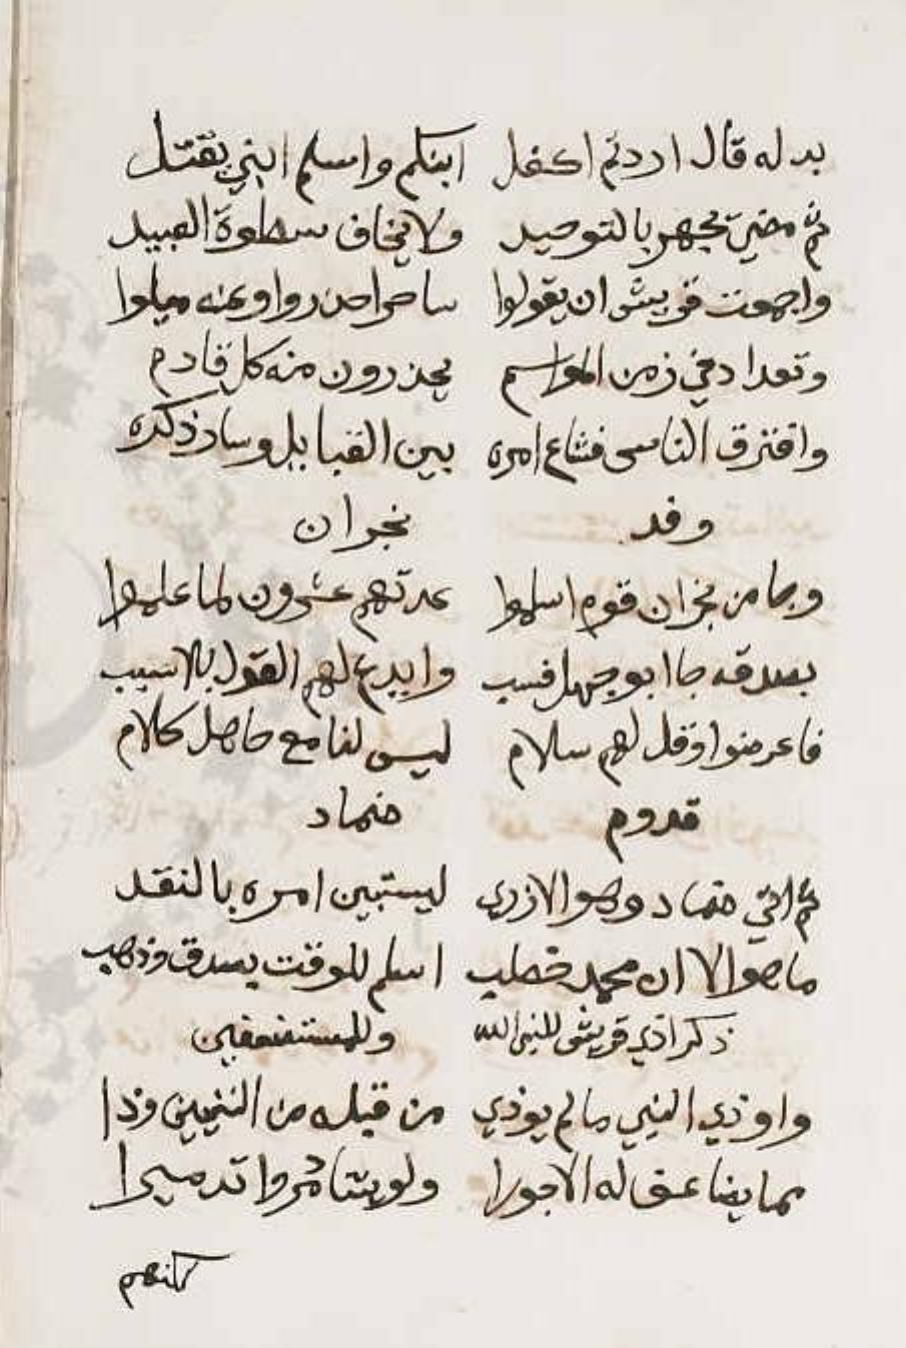 بدله قال اردتم اكفل ابنكم واسلم ابني يقتل
ثم مضى يجهر بالتوحيد ولا يخاف سطوة العبيد
واجمعت قريش ان يقولوا ساحر احذروا وعنه ميلوا
وقعدا وفي زمن المواسم يحذرون منه كل قادم
وافترق الناس فشاع امره بين القبايل وسار ذكره
وفد نجران
وجا من نجران قوم اسلموا عدتهم عشرون لما علموا
بصدقه جا ابو جهل فسب واقدع لهم القول بلا سبب
فاعرضوا وقل لهم سلام ليس لنا مع جاهل كلام
قدوم ضماد
ثم اتى ضماد وهو الازدي ليستبين امره بالنقد
ما هو الا ان محمد خطب اسلم للوقت بصدق وذهب
ذكر اذي قريش للنبي الله وللمستضعفين
واوذي النبي ما لم يوذي من قبله من النبيين وذا
مما يضاعف له الاجورا ولو يشا دمروا تدميرا
لكنهم